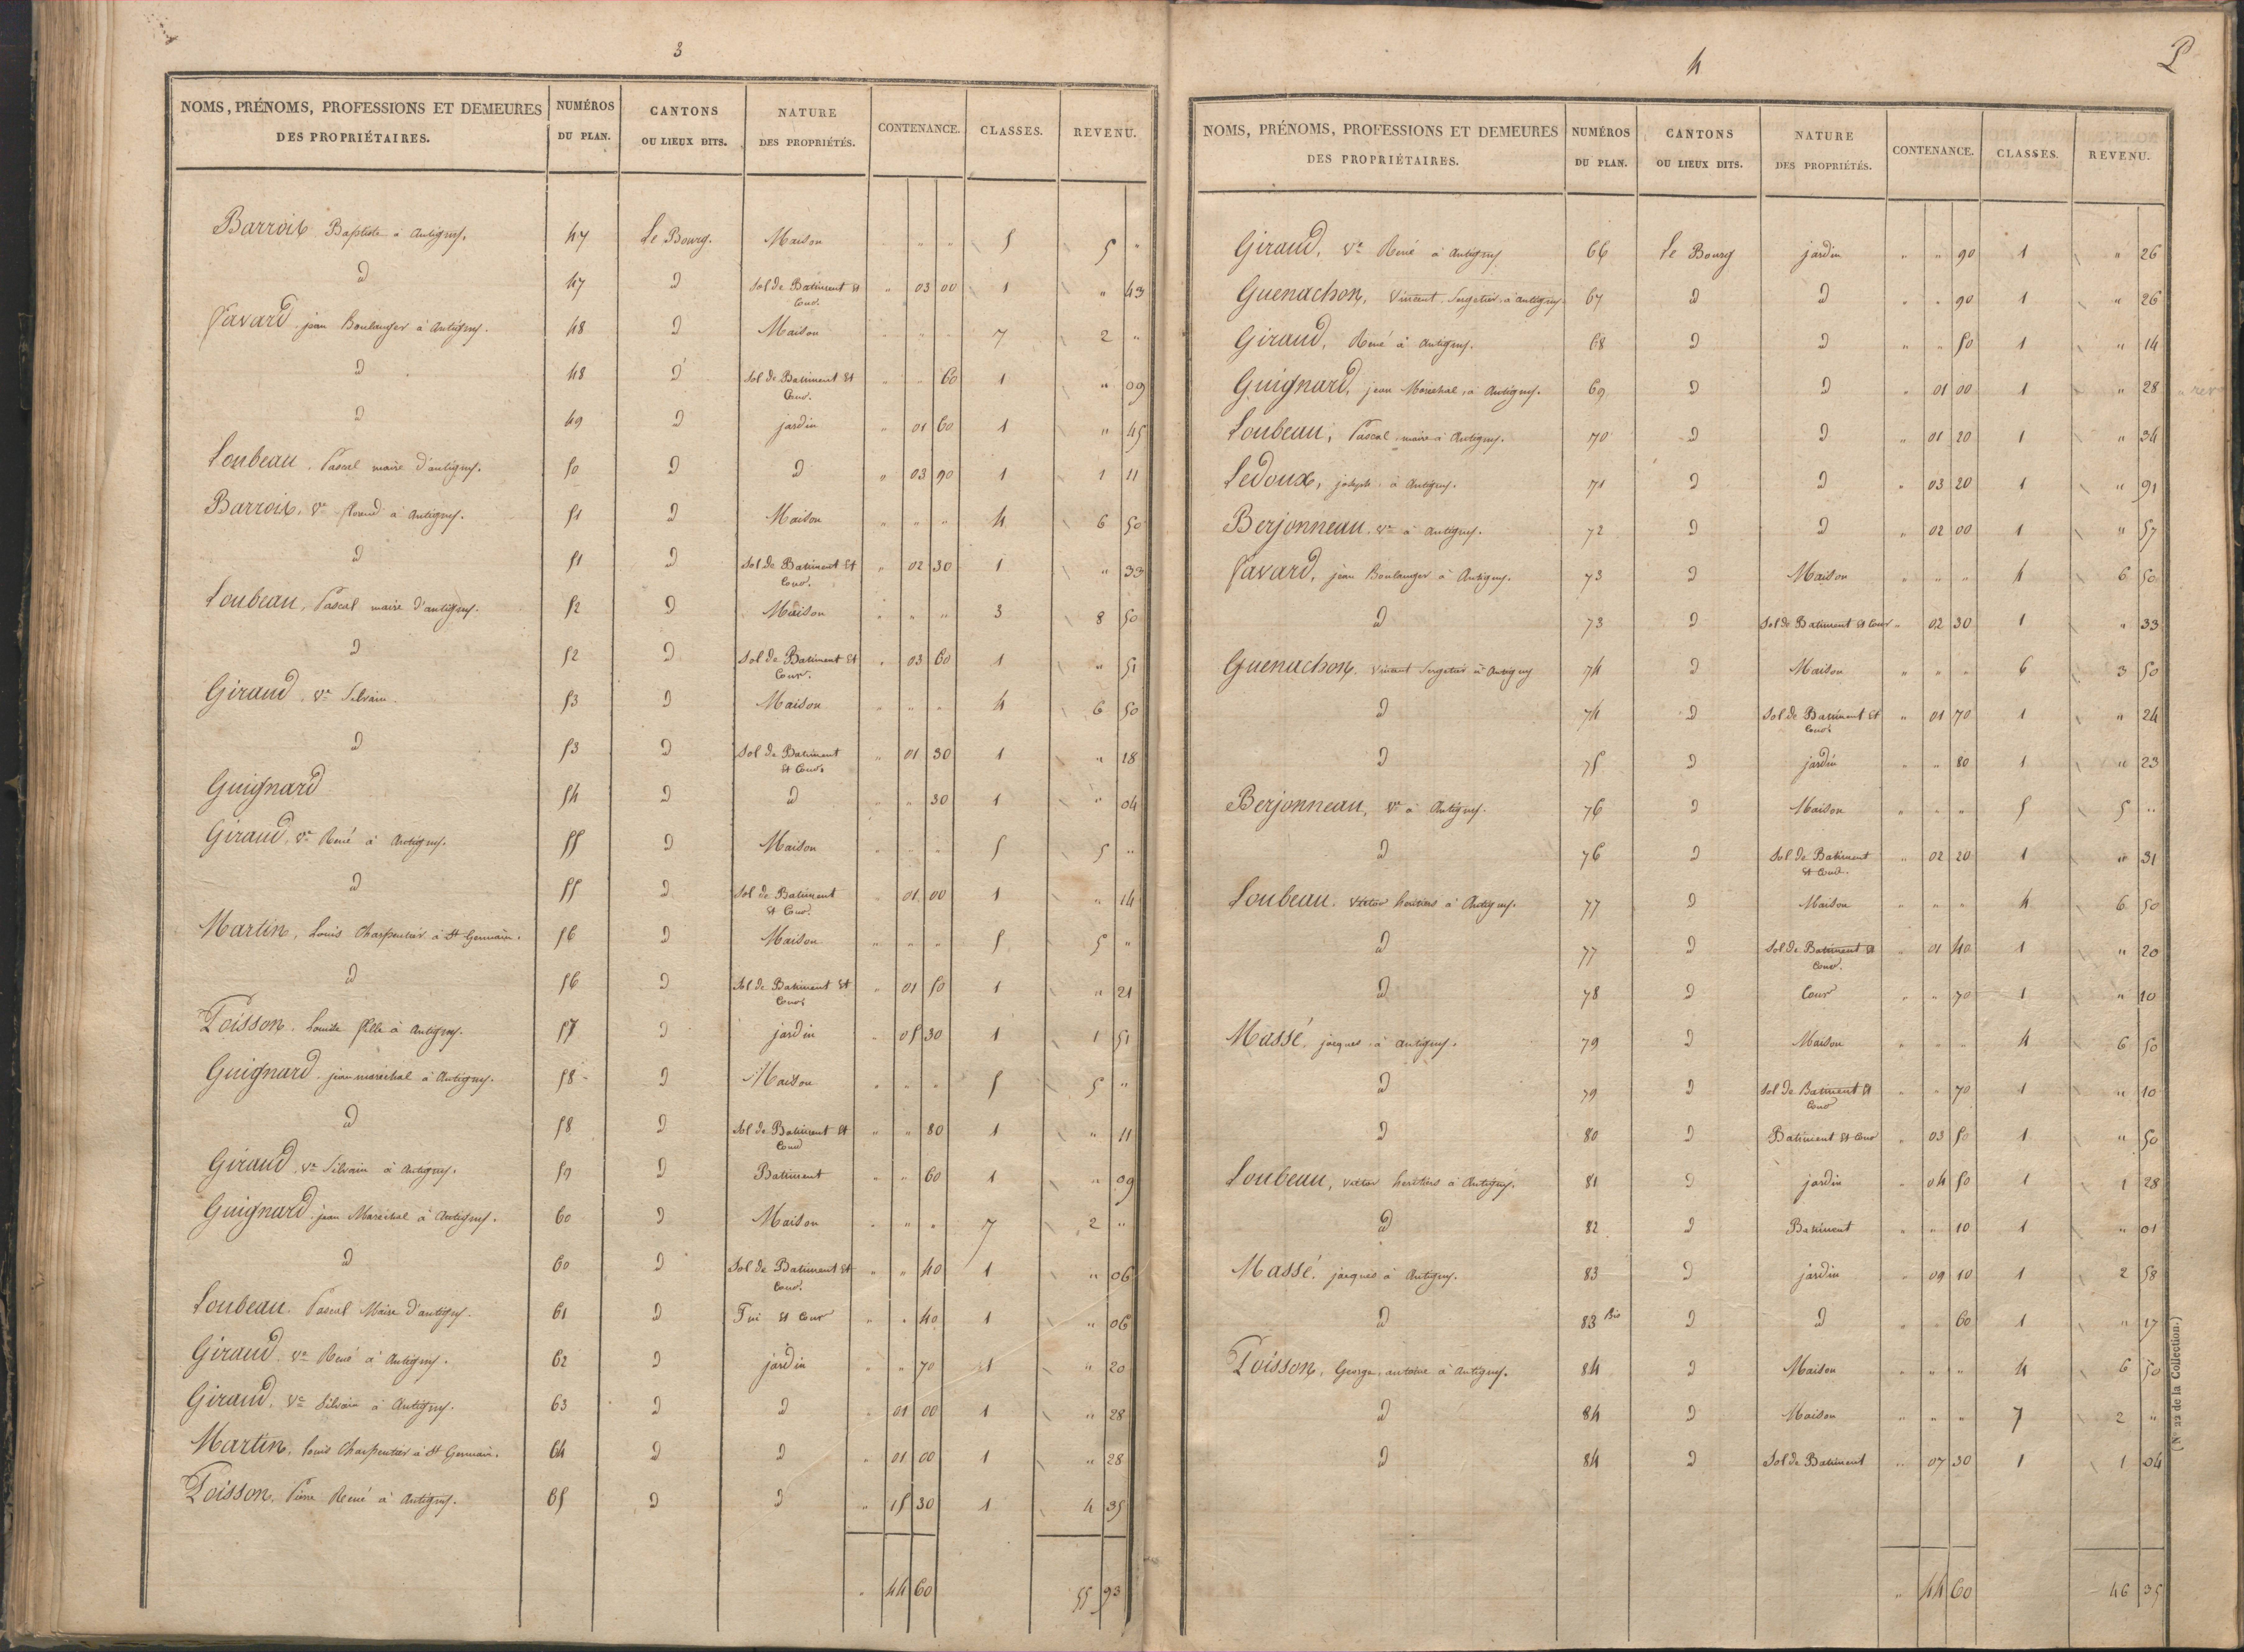 3
NOMS, PRÉNOMS, PROFESSIONS ET DEMEURES DES PROPRIÉTAIRES. NUMÉROS DU PLAN. CANTONS OU LIEUX DITS. NATURE DES PROPRIÉTÉS. CONTENANCE. CLASSES. REVENU.
Barroix Baptiste à Antigny. 47 Le Bourg. Maison " " " 5 5 "
d 47 d Sol de Batiment et Cour. " 03 00 1 " 43
Favard jean Boulanger à Antigny. 48 d Maison " " " 7 2 "
d 48 d Sol de Batiment et Cour. " " 60 1 " 09
d 49 d jardin " 01 60 1 " 45
Loubeau, Pascal maire d'antigny. 50 d d " 03 90 1 1 11
Barroix, Ve à antigny. 51 d Maison " " " 4 6 50
d 51 d Sol de Batiment et Cour. " 02 30 1 " 33
Loubeau, Pascal maire d'antigny. 52 d Maison " " " 3 8 50
d 52 d Sol de Batiment et Cour. " 03 60 1 " 51
Giraud, Ve Silvain 53 d Maison " " " 4 6 50
d 53 d Sol de Batiment et Cour " 01 30 1 " 18
Guignard 54 d d " " 30 1 " 04
Giraud, Ve René à Antigny. 55 d Maison " " " 5 5 "
d 55 d Sol de Batiment et Cour. " 01 00 1 " 14
Martin, Louis Charpentier à St Germain. 56 d Maison " " " 5 5 "
d 56 d Sol de Batiment et Cour " 01 50 1 " 21
Poisson, Louise fille à Antigny. 57 d jardin " 05 30 1 1 51
Guignard jean maréchal à Antigny. 58 d Maison " " " 5 5 "
d 58 d Sol de Batiment et Cour " " 80 1 " 11
Giraud Ve Silvain à Antigny. 59 d Batiment " " 60 1 " 09
Guignard jean Maréchal à Antigny. 60 d Maison " " " 7 2 "
d 60 d Sol de Batiment et Cour. " " 40 1 " 06
Loubeau, Pascal Maire d'antigny. 61 d et Cour " " 40 1 " 06
Giraud Ve René à Antigny. 62 d jardin " " 70 1 " 20
Giraud, Ve Silvain à Antigny. 63 d d " 01 00 1 " 28
Martin, Louis Charpentier à St Germain. 64 d d " 01 00 1 " 28
Poisson, Pierre René à Antigny. 65 d d " 15 30 1 4 35
" 44 60 55 93
4
NOMS, PRÉNOMS, PROFESSIONS ET DEMEURES DES PROPRIÉTAIRES. NUMÉROS DU PLAN. CANTONS OU LIEUX DITS. NATURE DES PROPRIÉTÉS. CONTENANCE. CLASSES. REVENU.
Giraud, Ve René à Antigny 66 Le Bourg jardin " " 90 1 " 26
Guenachon, Vincent Sergetier à antigny 67 d d " " 90 1 " 26
Giraud, René à Antigny. 68 d d " " 50 1 " 14
Guignard, jean Maréchal, à Antigny. 69 d d " 01 00 1 " 28
Loubeau, Pascal maire à Antigny. 70 d d " 01 20 1 " 34
Ledoux, joseph à Antigny. 71 d d " 03 20 1 " 91
Berjonneau, Ve à Antigny. 72 d d " 02 00 1 " 57
Favard, jean Boulanger à Antigny. 73 d Maison " " " 4 6 50
d 73 d Sol de Batiment et Cour " 02 30 1 " 33
Guenachon, Vincent Sergetier à Antigny 74 d Maison " " " 6 3 50
d 74 d Sol de Batiment et Cour " 01 70 1 " 24
d 75 d jardin " " 80 1 " 23
Berjonneau, Ve à Antigny. 76 d Maison " " " 5 5 "
d 76 d Sol de Batiment et Cour. " 02 20 1 " 31
Loubeau, Victor heritiers à Antigny. 77 d Maison " " " 4 6 50
d 77 d Sol de Batiment et Cour. " 01 40 1 " 20
d 78 d Cour " " 70 1 " 10
Massé, jacques à antigny. 79 d Maison " " " 4 6 50
d 79 d Sol de Batiment et Cour " " 70 1 " 10
d 80 d Batiment et Cour " 03 50 1 " 50
Loubeau, Victor heritiers à Antigny. 81 d jardin " 04 50 1 1 28
d 82 d Batiment " " 10 1 " 01
Massé, jacques à Antigny. 83 d jardin " 09 10 1 2 58
d 83 Bis d d " " 60 1 " 17
Poisson, George antoine à Antigny. 84 d Maison " " " 4 6 50
d 84 d Maison " " " 7 2 "
d 84 d Sol de Batiment " 07 30 1 1 04
" 44 60 46 35
(N° 22 de la Collection.)